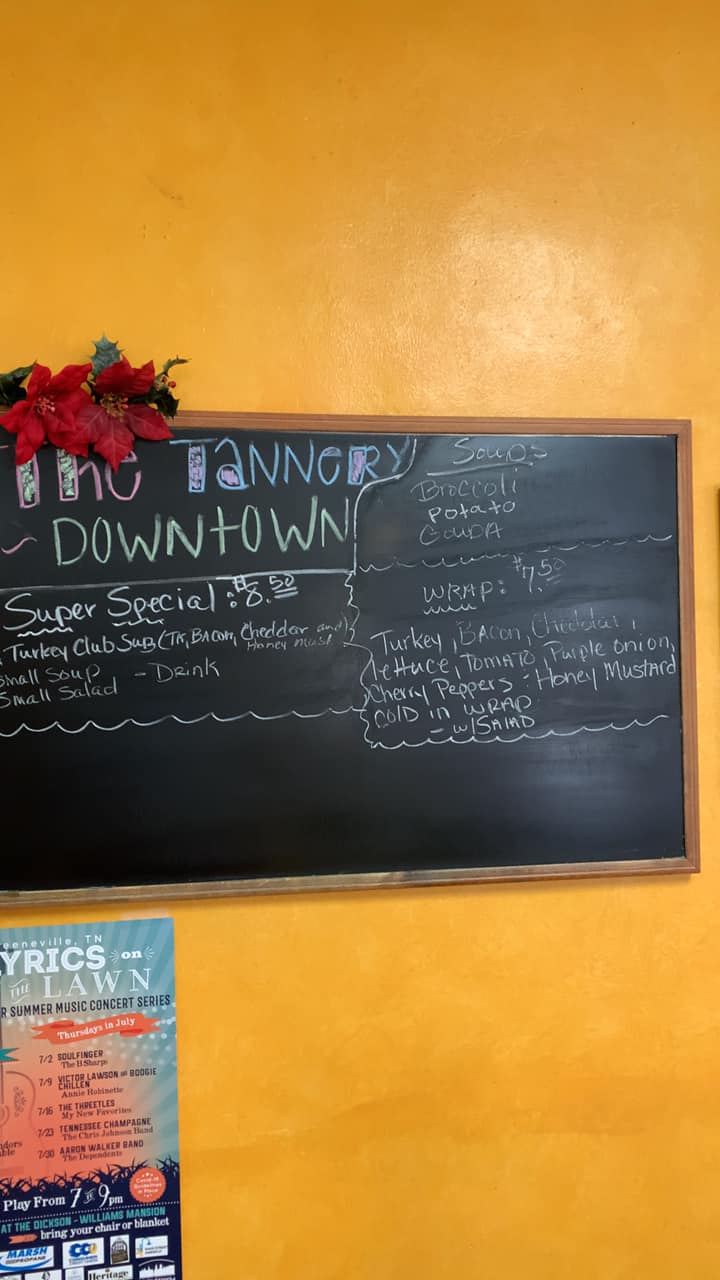 The TANNERY
- DOWNTOWN
Super Special: $8.50
Turkey Club Sub (TK, BACON, Cheddar and
Honey Must
Small Soup
- Drink
Small Salad
Soups
Broccoli
potato
GOUDA
WRAP: $7.50
Turkey, BACON, Cheddar,
lettuce, TOMATO, Purple onion,
Cherry Peppers - Honey Mustard
COLD in WRAP
- w/SALAD
eeneville, TN
LYRICS on
THE LAWN
R SUMMER MUSIC CONCERT SERIES
Thursdays in July
7/2 SOULFINGER
The B Sharps
7/9 VICTOR LAWSON AND BOOGIE
CHILLEN
Annie Robinette
7/16 THE THREETLES
My New Favorites
7/23 TENNESSEE CHAMPAGNE
The Chris Johnson Band
7/30 AARON WALKER BAND
The Dependents
ndors
ble
Covid-19
Guidelines
in Place
Play From 7 TO 9pm
AT THE DICKSON - WILLIAMS MANSION
bring your chair or blanket
MARSH
PROPANE
CCU
Heritage